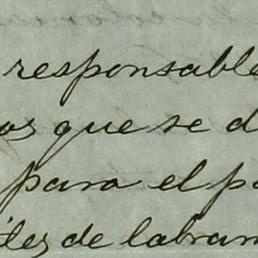 responsable
os que se d
para el p
iles de labran